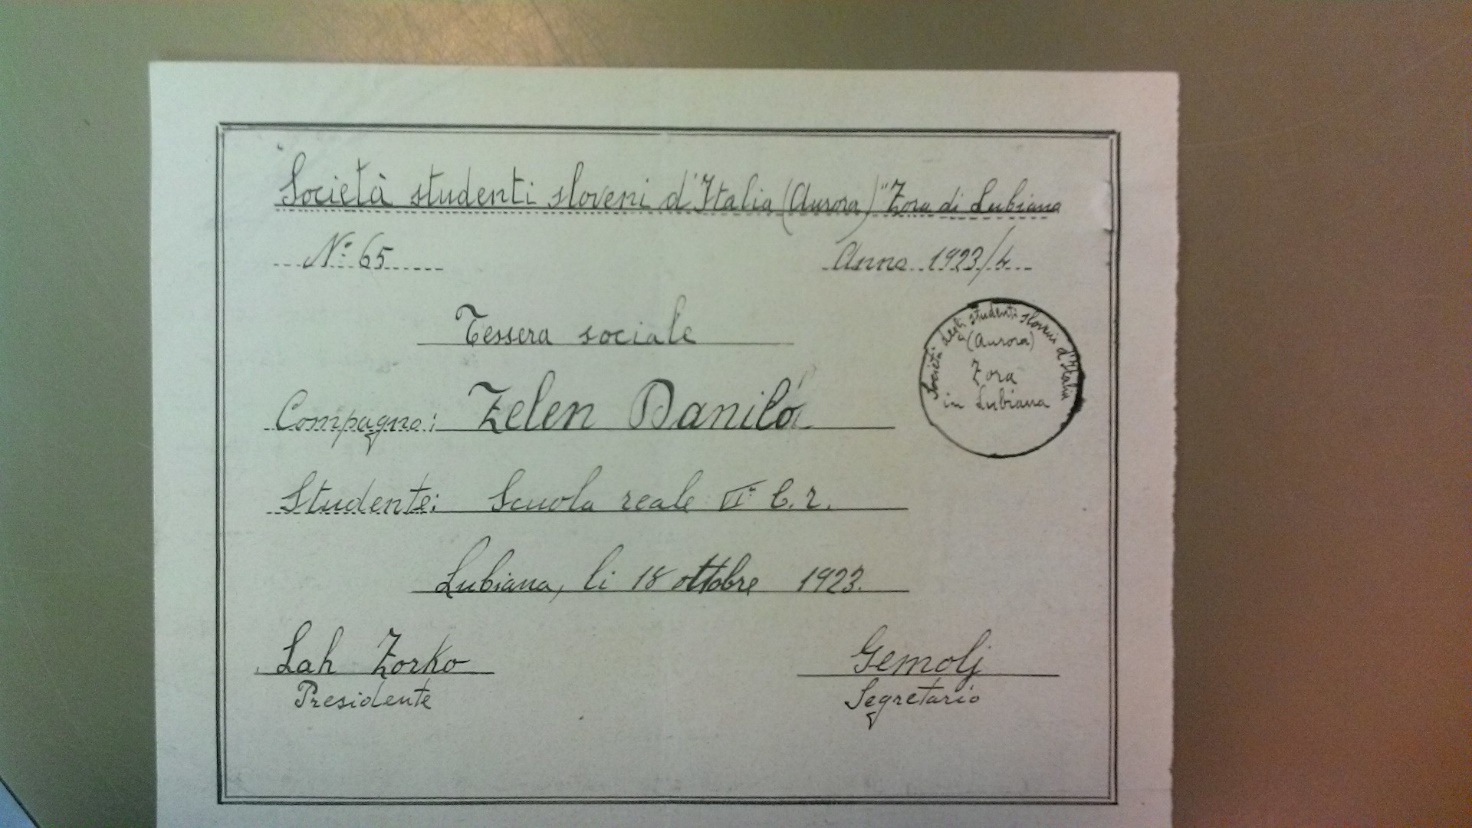 Società studenti sloveni d'Italia (Aurora) "Zora di Lubiana
No: 65
Anno 1923/4
Tessera sociale
Società degli studenti sloveni d'Italia
(Aurora)
Zora
in Lubiana
Compagno: Zelen Danilo
Studente: Scuola reale
Lubiana, li 18 ottobre 1923.
Lah Zorko
Presidente
Gemolj
Segretario